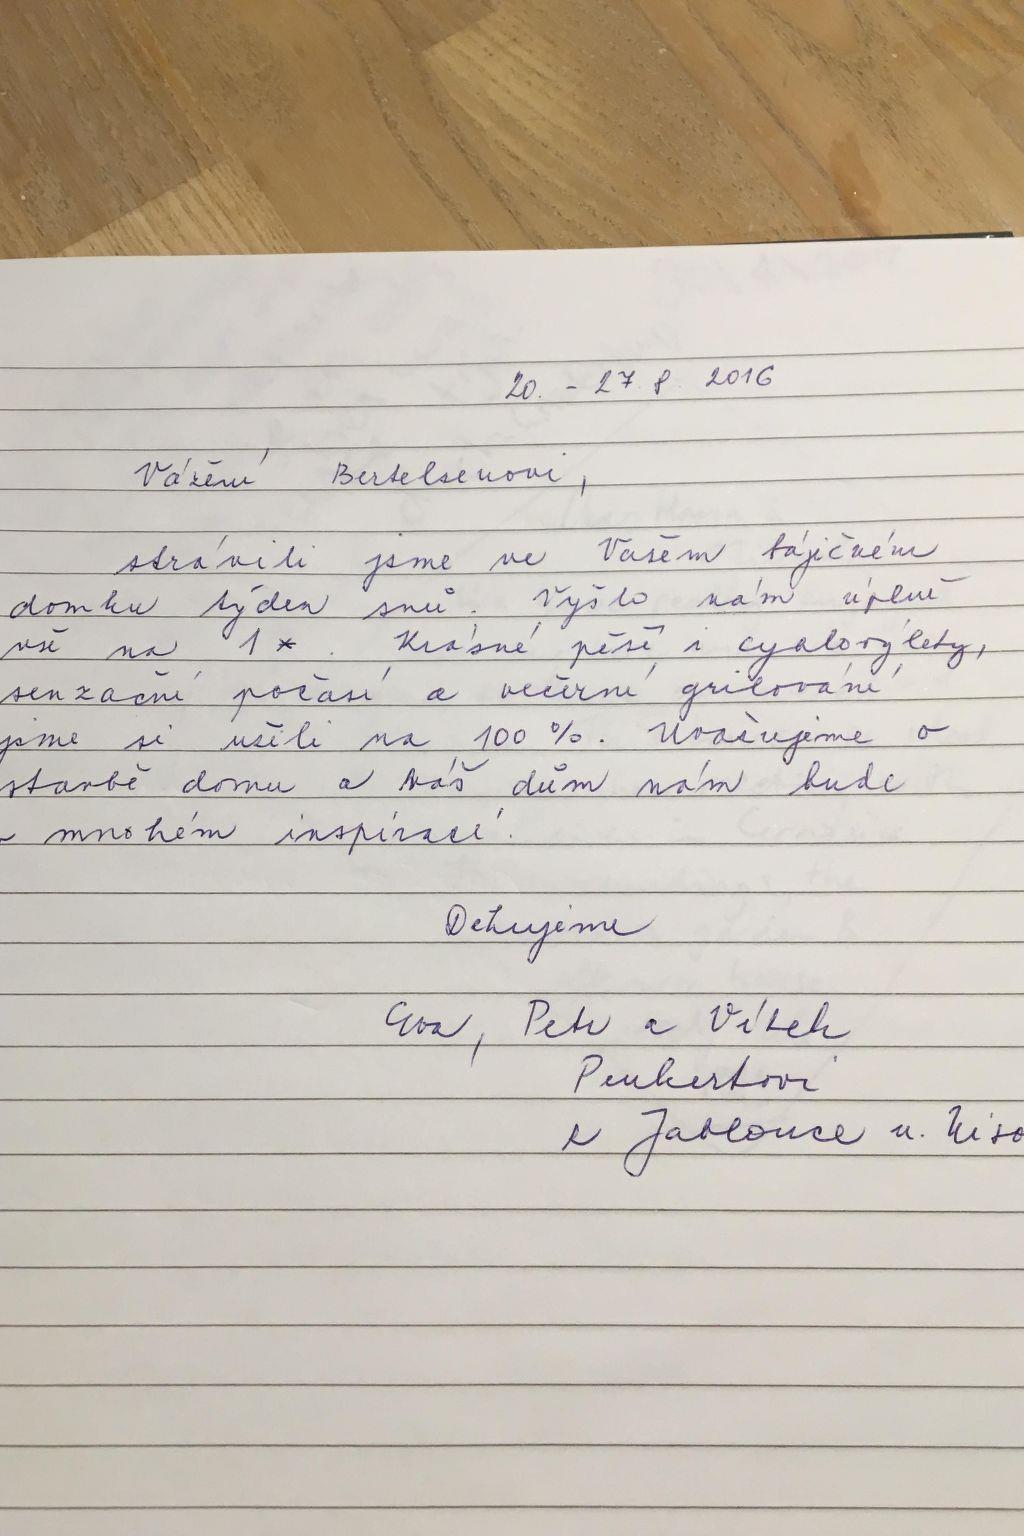 20. - 27. 8. 2016
Vážení Bertelsenovi,
strávili jsme ve Vašem báječném
domku týden snů. Vyšlo nám úplně
vše na 1*. Krásné pěší i cyklovýlety,
senzační počasí a večerní grilování
jsme si užili na 100%. Uvažujeme o
stavbě domu a Váš dům nám bude
v mnohém inspirací.
Děkujeme
Eva, Petr a Vítek
Peukertovi
z Jablonce n. Niso